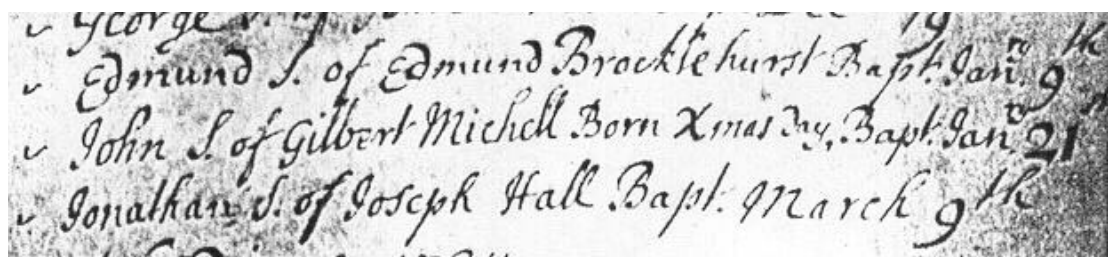 George S. of
Edmund S. of Edmund Brocklehurst Bapt. Janry. 9th
John S. of Gilbert Michell Born Xmas Day, Bapt. Janry 21st
Jonathan S. of Joseph Hall Bapt. March 9th